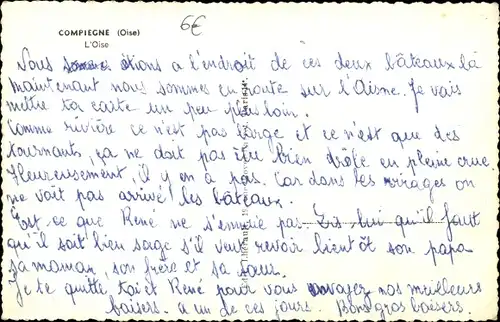 6€
COMPIEGNE (Oise)
L'Oise
Nous sommes étions a l'endroit de ces deux bâteaux là
maintenant nous sommes en route sur l'Aisne. Je vais
mettre ta carte un peu plus loin.
Comme rivière ce n'est pas large et ce n'est que des
tournants, ça ne doit pas être bien drôle en pleine crue
Heureusement, il y en à pas. Car dans les virages on
ne voit pas arrivé les bâteaux.
Est ce que René ne s'ennuie pas. Dis lui qu'il faut
qu'il soit bien sage s'il veut revoir bientôt son papa
sa maman, son frère et sa sœur.
Je te quitte toi et René pour vous envoyez nos meilleurs
baisers. a un de ces jours. Bons gros baisers.